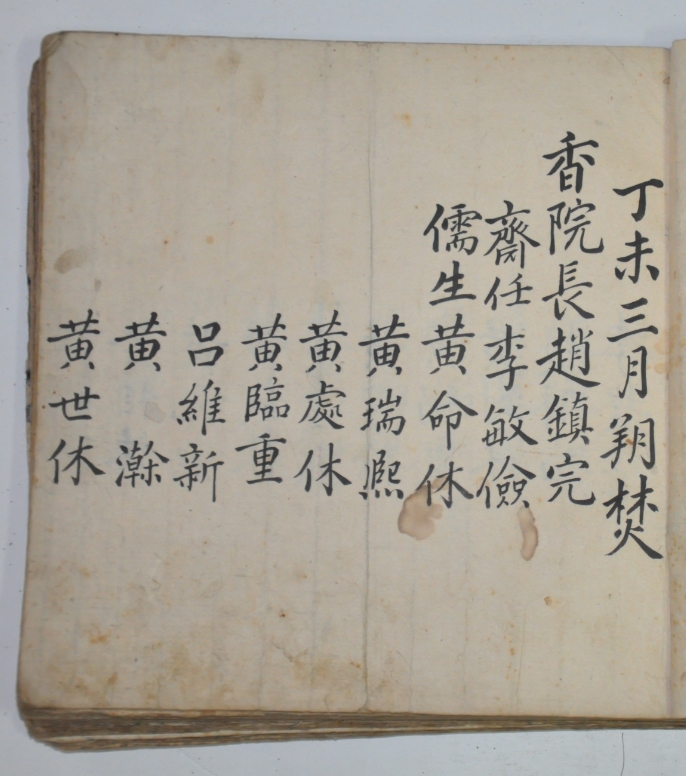 丁未三月朔焚
香院長趙鎮完
齋任李敏儉
儒生黃命休
黃瑞熙
黃處休
黃臨重
呂維新
黃瀚
黃世休